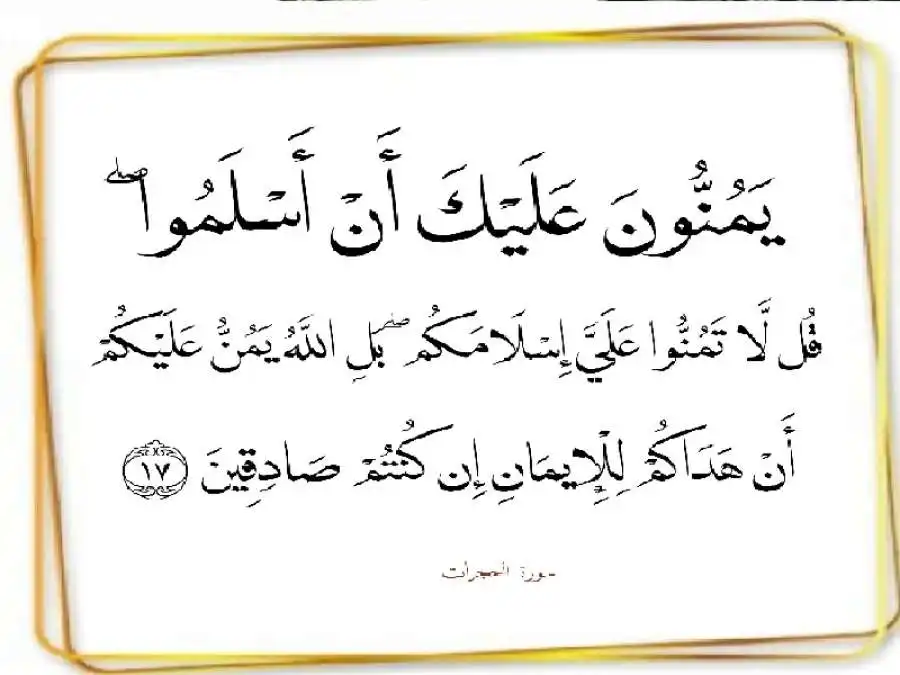 يَمُنُّونَ عَلَيْكَ أَنْ أَسْلَمُوا ۖ
قُل لَّا تَمُنُّوا عَلَيَّ إِسْلَامَكُم ۖ بَلِ اللَّهُ يَمُنُّ عَلَيْكُمْ
أَنْ هَدَاكُمْ لِلْإِيمَانِ إِن كُنتُمْ صَادِقِينَ ١٧
سورة الحجرات